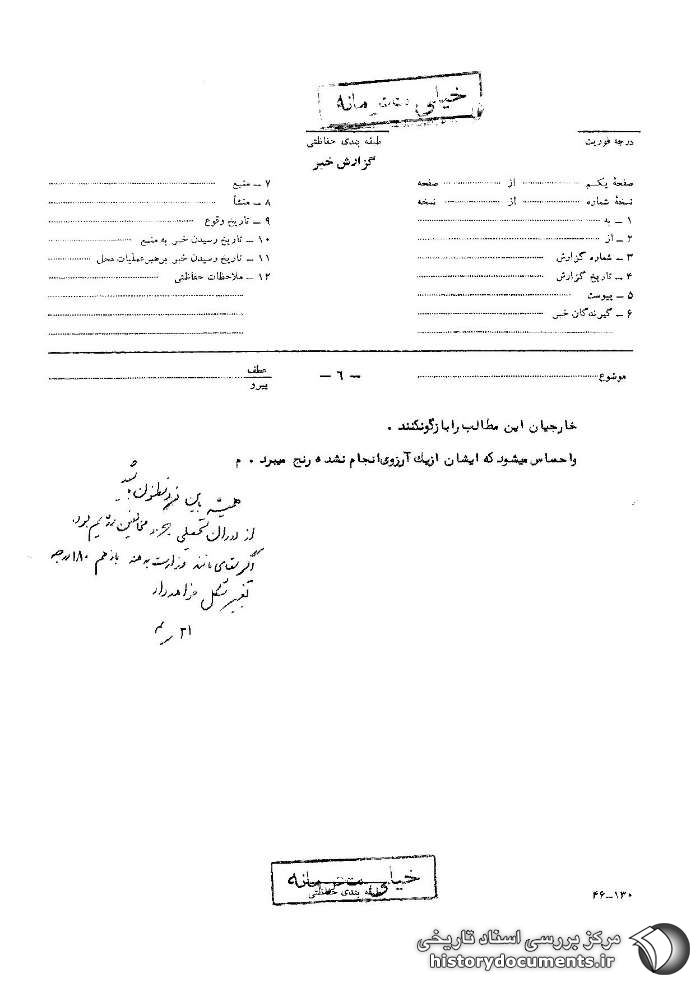 خیلی محرمانه
درجه فوریت
طبقه بندی حفاظتی
گزارش خبر
صفحهٔ یکم از صفحه
نسخهٔ شماره از نسخه
۱ – به
۲ – از
۳ – شماره گزارش
۴ – تاریخ گزارش
۵ – پیوست
۶ – گیرندگان خبر
۷ – منبع
۸ – منشأ
۹ – تاریخ وقوع
۱۰ – تاریخ رسیدن خبر به منبع
۱۱ – تاریخ رسیدن خبر برهبر عملیات محل
۱۲ – ملاحظات حفاظتی
موضوع
– ٦ –
عطف
پیرو
خارجیان این مطالب را بازگو نکنند .
و احساس میشود که ایشان از یک آرزوی انجام نشده رنج میبرد . م
همیشه باین فرد مظنون باشید
از دوران تحصیلی جزو مخالفین رژیم بود.
اگر مقامی مانند وزارت به دهند باز هم ۱۸۰ درجه
تغییر شکل خواهد داد
خیلی محرمانه
طبقه بندی حفاظتی
۴۶–۱۳۰
مرکز بررسی اسناد تاریخی
historydocuments.ir